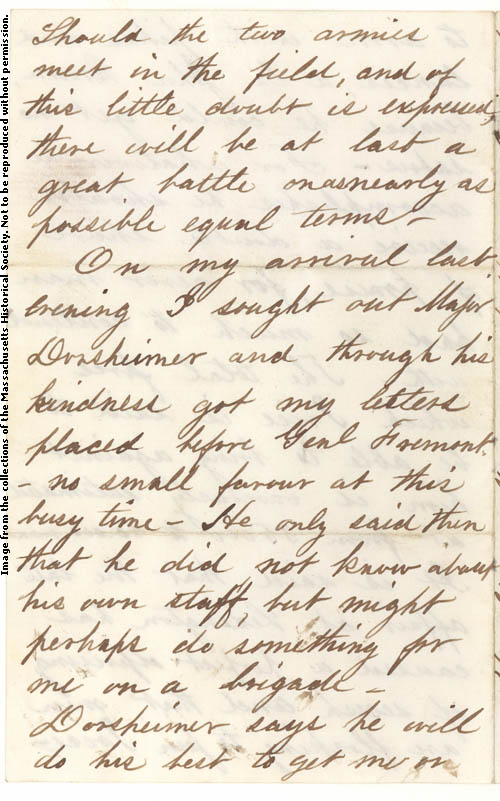 Should the two armies
meet in the field, and of
this little doubt is expressed,
there will be at last a
great battle on as nearly as
possible equal terms -
On my arrival last
evening I sought out Major
Dorsheimer and through his
kindness got my letters
placed before Genl Fremont.
- no small favour at this
busy time - He only said then
that he did not know about
his own staff, but might
perhaps do something for
me on a brigade -
Dorsheimer says he will
do his best to get me on
Image from the collections of the Massachusetts Historical Society. Not to be reproduced without permission.